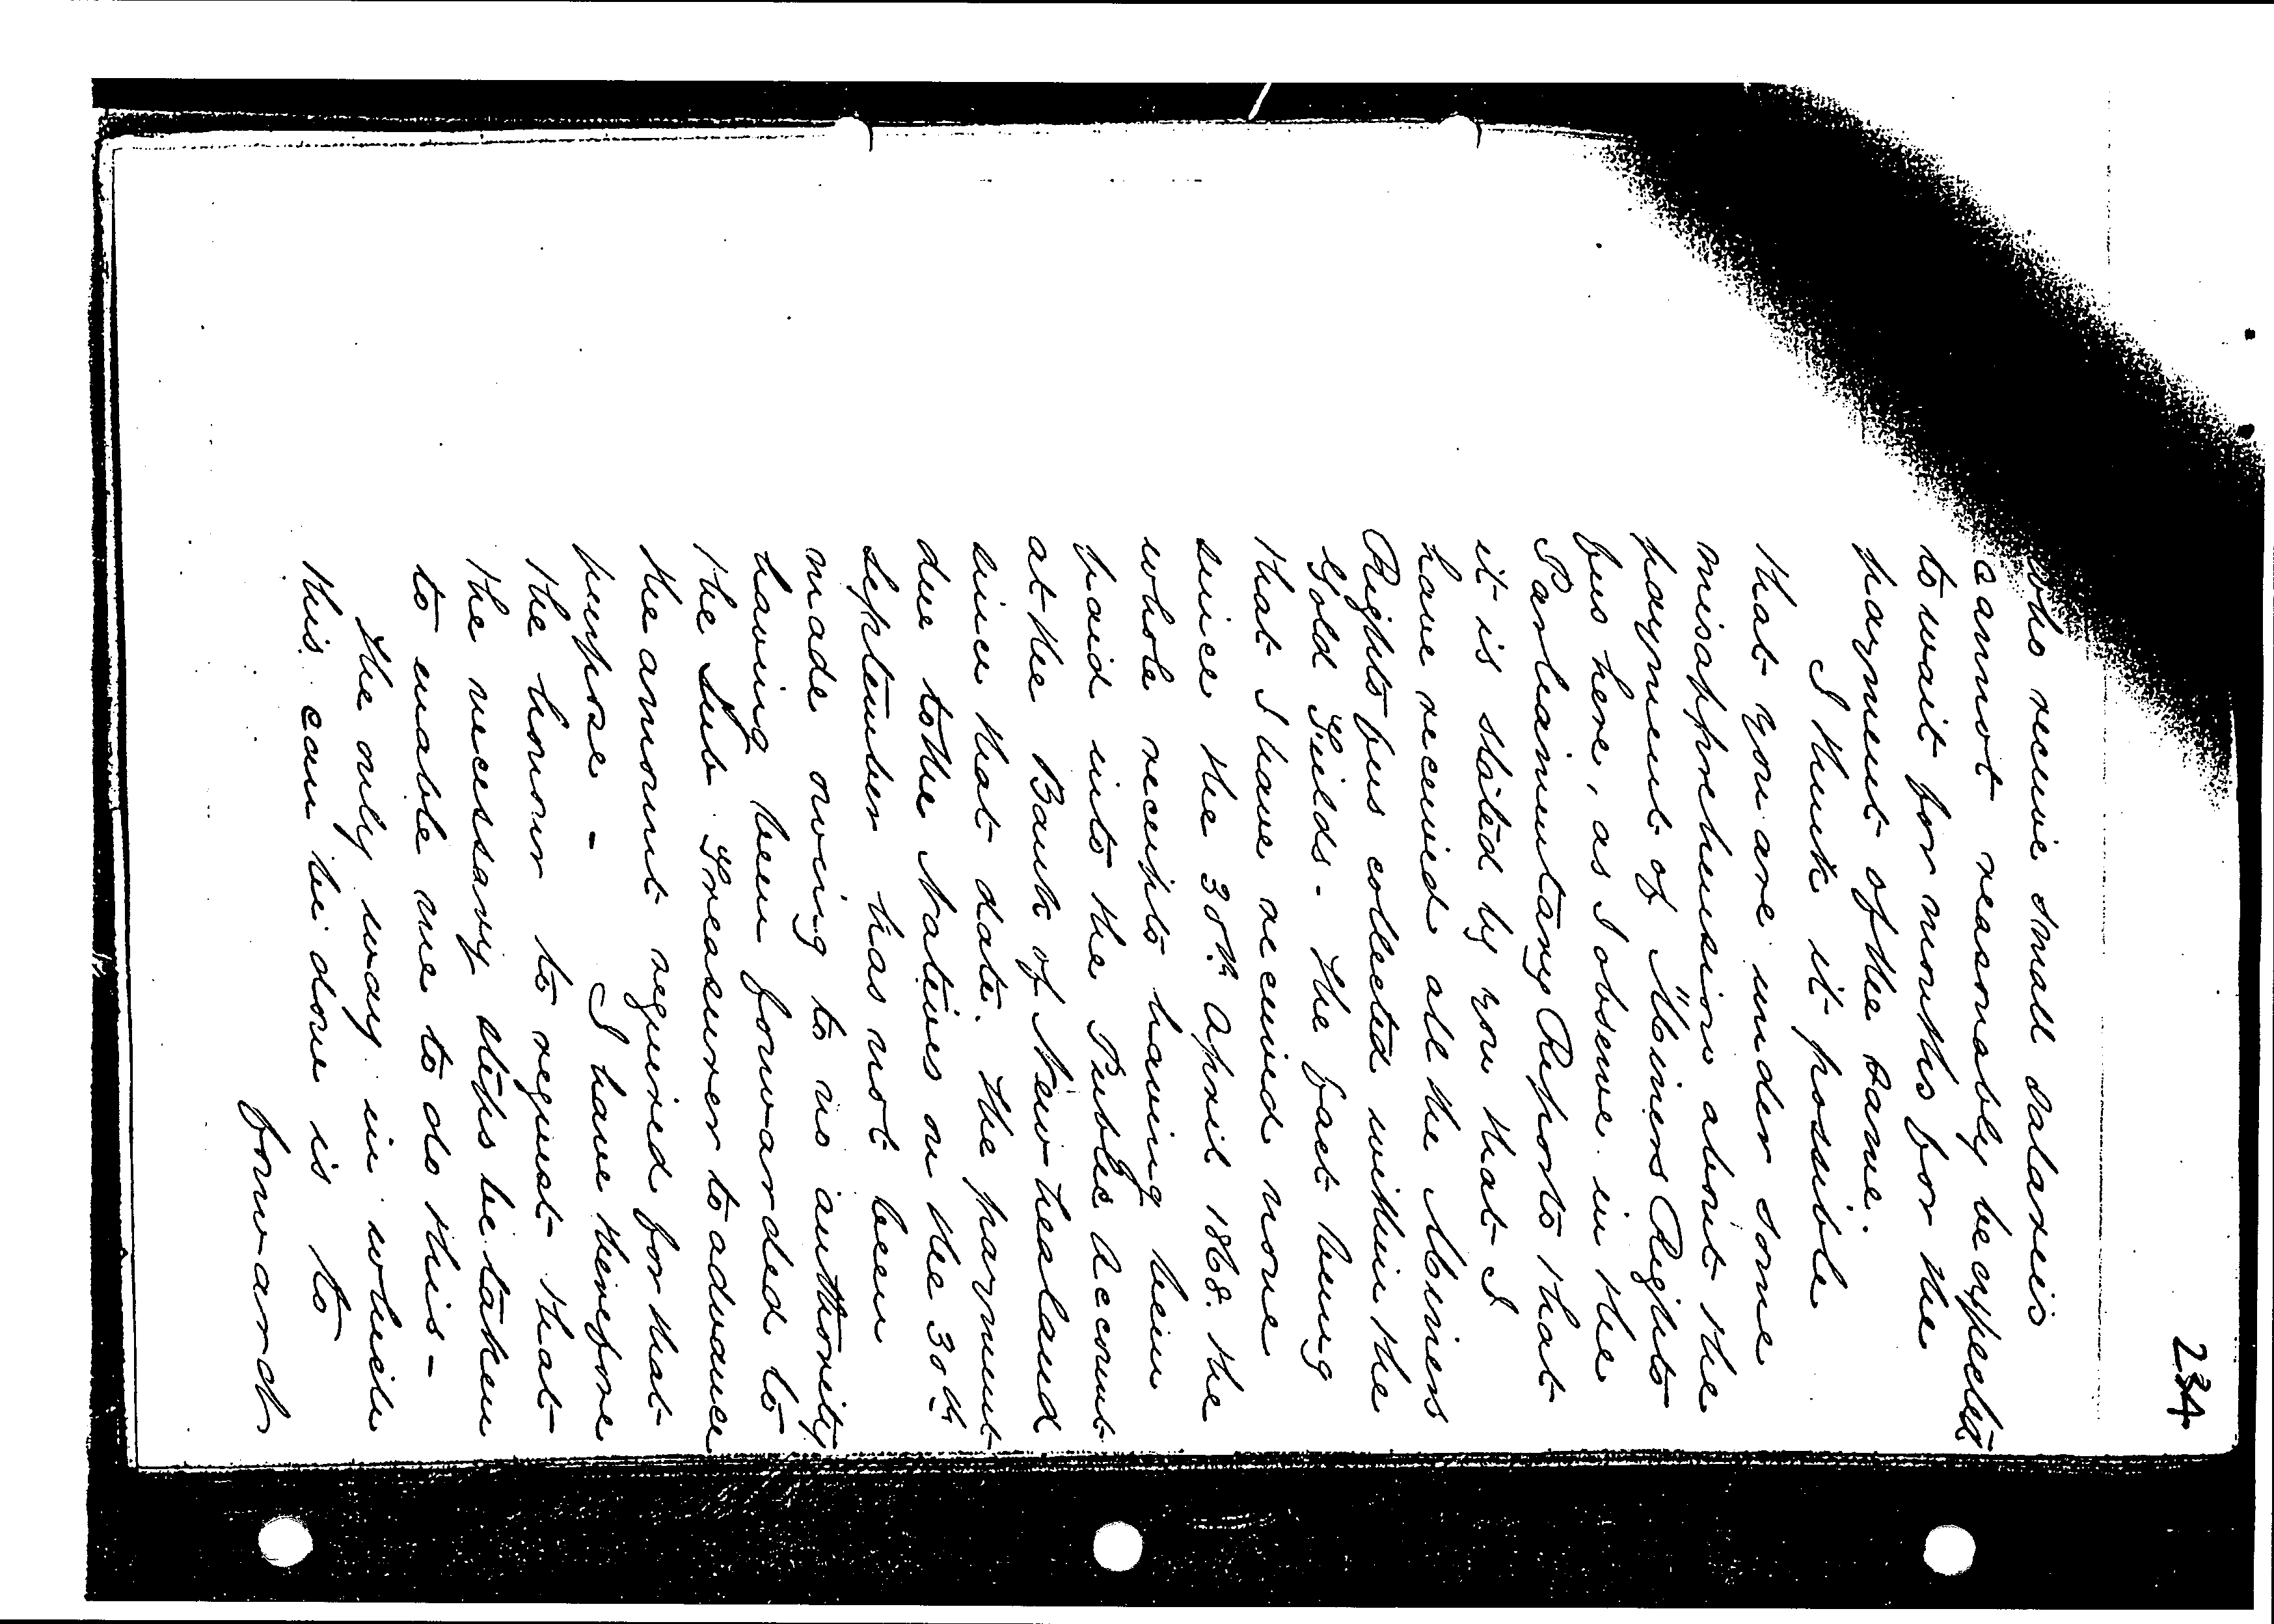 234
who receive small salaries
cannot reasonably be expected
to wait for months for the
payment of the same.
I think it possible
that you are under some
misapprehension about the
payment of "Miners Rights
fees here, as I observe in the
Parliamentary Reports that
it is stated by you that I
have received all the Miners
Rights fees collected within the
Gold Feilds - the fact being
that I have received none
since the 30th April 1868. the
whole receipts having been
paid into the Public Account
at the Bank of New Zealand
since that date. the payment
due to the Natives on the 30th
September has not been
made owing to no authority
having been forwarded to
the Sub Treasurer to advance
the amount required for that
purpose - I have therefore
the honour to request that
the necessary steps be taken
to enable me to do this -
the only way in which
this can be done is to
forward